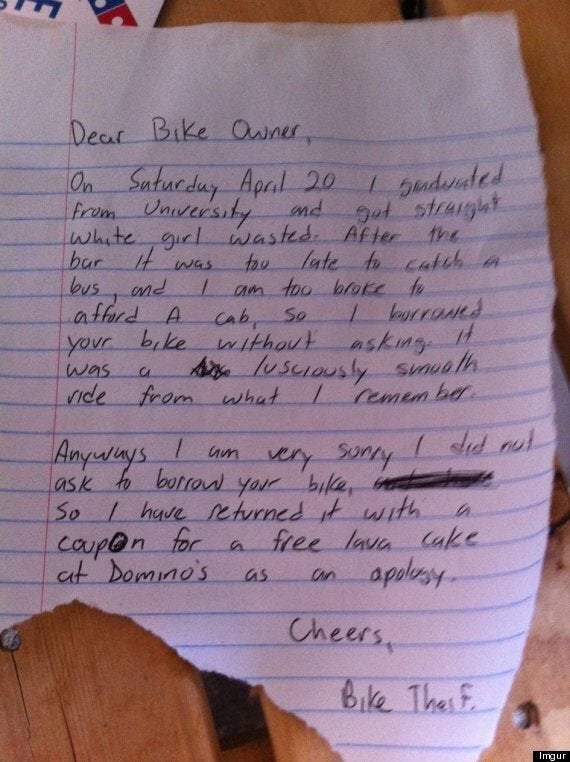 Dear Bike Owner,
On Saturday April 20 I graduated
from University and got straight
white girl wasted. After the
bar it was too late to catch a
bus, and I am too broke to
afford A cab, so I borrowed
your bike without asking. It
was a lusciously smooth
ride from what I remember.
Anyways I am very sorry I did not
ask to borrow your bike,
So I have returned it with a
coupon for a free lava cake
at Domino's as an apology.
Cheers,
Bike Theif.
Imgur